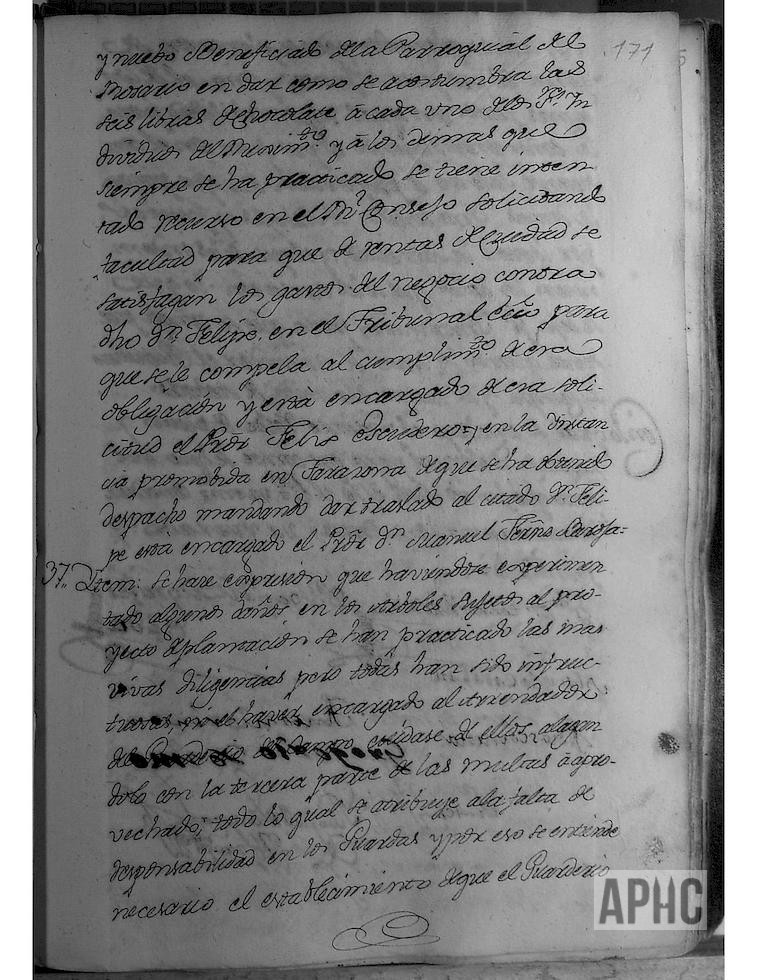 171
y nuebo Beneficiado de la Parroquial del
Rosario en dar como se acostumbra las
seis libras de chocolate à cada uno de los Ss. Yn
dividuos del Ayuntim.to y à los demas que
siempre se ha practicado se tiene inten
tado recurso en el R.l Consejo solicitando
facultad para que de rentas de Ciudad se
satisfagan los gastos del negocio contra
dho D.n Felipe, en el Tribunal Ecco para
que se le compela al cumplim.to de esa
obligación y està encargado de esa soli-
citud el Pror Felix Escudero; y en la Ynstan
cia promobida en Tarazona de que se ha obtenido
despacho mandando dar traslado al citado D.n Feli-
pe està encargado el Pror D.n Manuel
37.. Ytem: se hace expresion que haviendose experimen
tado algunos daños en los arboles sugetos al pro-
yecto de plantacion se han practicado las mas
vivas diligencias pero todas han sido infruc-
tuosas, ni el haver encargado al Arrendador
del cuidase de ellos alagan
dolo con la tercera parte de las multas à apro-
vechado; todo lo qual se atribuye a la falta de
responsabilidad en los Guardas y por eso se entiende
necesario el establecimiento de que el Guarderio
APHC